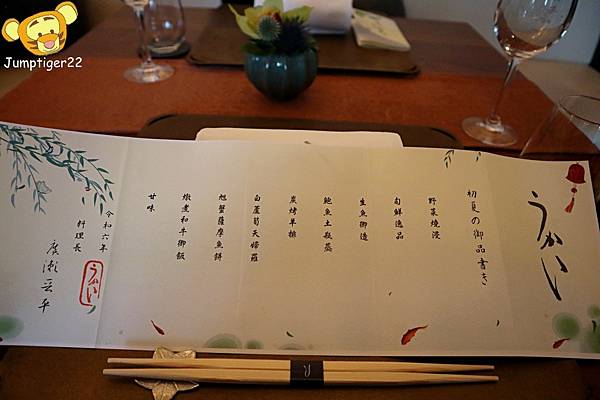 Jumptiger22
うかい
初夏の御品書き
野菜燒浸
旬鮮逸品
生魚御造
鮑魚土瓶蒸
炭烤羊排
白蘆筍天婦羅
旭蟹薩摩魚餅
燉煮和牛御飯
甘味
令和六年
料理長
廣瀬
うかい